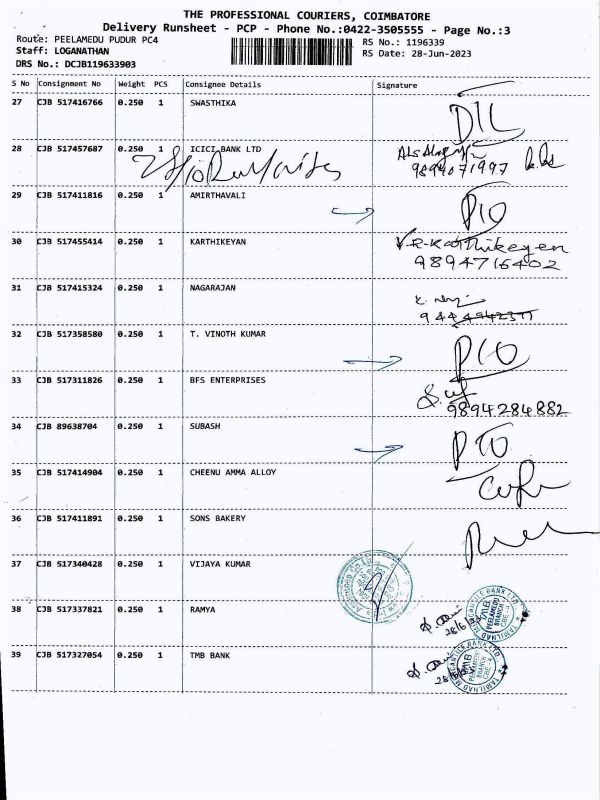 THE PROFESSIONAL COURIERS, COIMBATORE
Delivery Runsheet - PCP - Phone No.:0422-3505555 - Page No.:3
Route: PEELAMEDU PUDUR PC4
RS No.: 1196339
Staff: LOGANATHAN
RS Date: 28-Jun-2023
DRS No.: DCJB119633903
S No Consignment No Weight PCS Consignee Details Signature
27 CJB 517416766 0.250 1 SWASTHIKA
28 CJB 517457687 0.250 1 ICICI BANK LTD
9894071997
29 CJB 517411816 0.250 1 AMIRTHAVALI
30 CJB 517455414 0.250 1 KARTHIKEYAN V.R.Karthikeyen
9894716402
31 CJB 517415324 0.250 1 NAGARAJAN
32 CJB 517358580 0.250 1 T. VINOTH KUMAR
33 CJB 517311826 0.250 1 BFS ENTERPRISES
9894284882
34 CJB 89638704 0.250 1 SUBASH
35 CJB 517414904 0.250 1 CHEENU AMMA ALLOY
36 CJB 517411891 0.250 1 SONS BAKERY
37 CJB 517340428 0.250 1 VIJAYA KUMAR
38 CJB 517337821 0.250 1 RAMYA
TAMILNAD MERCANTILE BANK LTD.
TMB
PEELAMEDU
BRANCH
CBE-4
39 CJB 517327054 0.250 1 TMB BANK
TAMILNAD MERCANTILE BANK LTD.
TMB
PEELAMEDU
BRANCH
CBE-4